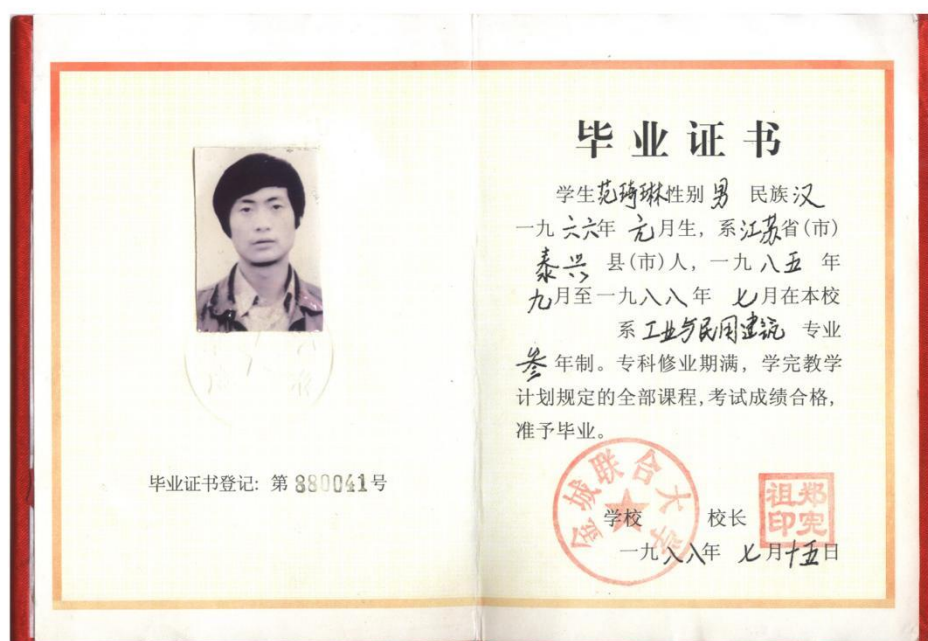 毕业证书登记: 第880041号
毕业证书
学生范琦琳性别男 民族汉
一九六六年 元月生, 系江苏省(市)
泰兴 县(市)人, 一九八五 年
九月至一九八八年 七月在本校
系工业与民用建筑 专业
叁年制。专科修业期满, 学完教学
计划规定的全部课程, 考试成绩合格,
准予毕业。
金城联合大学
学校 校长
郑宪祖印
一九八八年 七月十五日